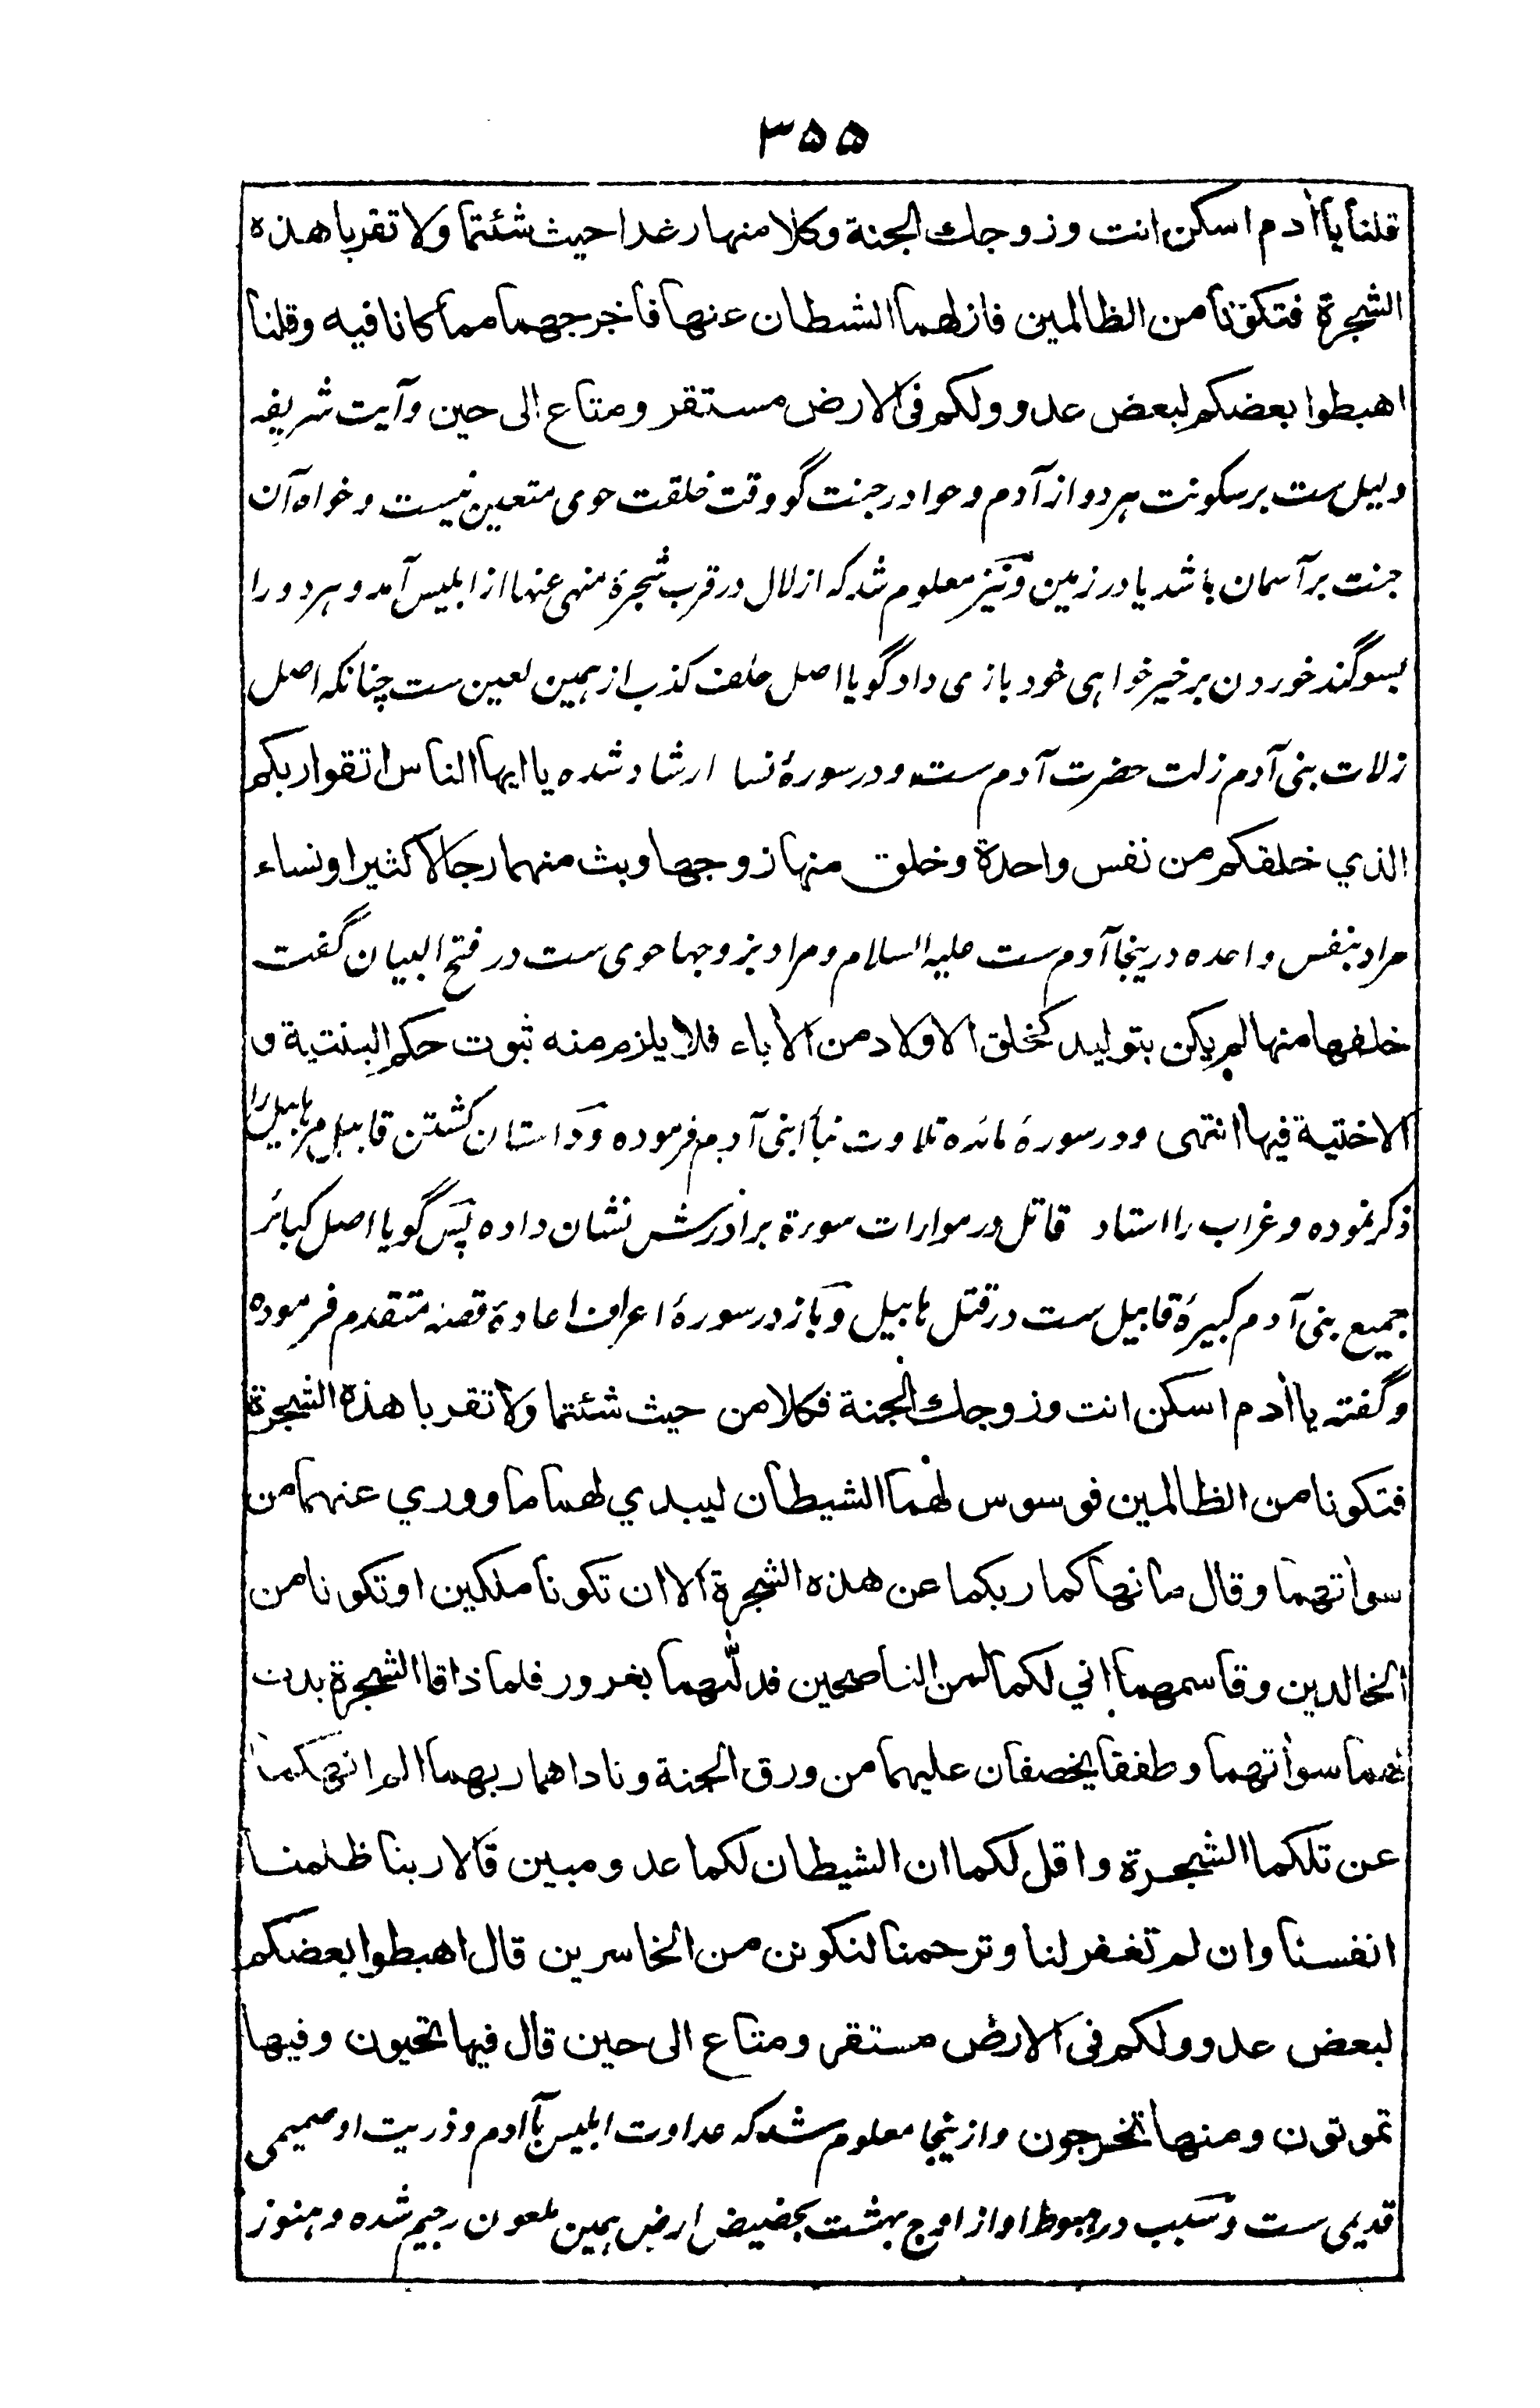 ۳۵۵
قلنا یا اٰدم اسکن انت وزوجك الجنة وکلا منها رغدا حیث شئتما ولا تقربا هذه
الشجرة فتکونا من الظالمین فازلهما الشیطان عنها فاخرجهما مما کانا فیه وقلنا
اهبطوا بعضکم لبعض عدو ولکم فی الارض مستقر ومتاع الی حین وآیت شریفه
دلیل ست بر سکونت هر دو از آدم وحوا در جنت گو وقت خلقت حوی متعین نیست وخواه آن
جنت بر آسمان باشد یا در زمین ونیز معلوم شد که ازلال در قرب شجرۀ منهی عنها از ابلیس آمد وهر دو را
بسوگند خوردن بر خیر خواهی خود بازی داد گویا اصل حلف کذب از همین لعین ست چنانکه اصل
زلات بنی آدم زلت حضرت آدم ست ودر سورۀ نسا ارشاد شده یا ایها الناس اتقوا ربکم
الذي خلقکم من نفس واحدة وخلق منها زوجها وبث منهما رجالا کثیرا ونساء
مراد بنفس واحده درینجا آدم ست علیه السلام ومراد بزوجها حوی ست در فتح البیان گفت
خلقها منها لم یکن بتولید کخلق الاولاد من الأباء فلا یلزم منه ثبوت حکم البنتیة و
الاختیة فیها انتهی ودر سورۀ مائده تلاوت نبأ ابنی آدم فرموده وداستان کشتن قابیل مر هابیل را
ذکر نموده وغراب را استاد قاتل در موارات سوءة برادرش نشان داده پس گویا اصل کبائر
جمیع بنی آدم کبیرۀ قابیل ست در قتل هابیل وباز در سورۀ اعراف اعادۀ قصۀ متقدم فرموده
وگفته یا اٰدم اسکن انت وزوجك الجنة فکلا من حیث شئتما ولا تقربا هذه الشجرة
فتکونا من الظالمین فوسوس لهما الشیطان لیبدي لهما ما ووري عنهما من
سوأتهما وقال ما نهاکما ربکما عن هذه الشجرة الا ان تکونا ملکین او تکونا من
الخالدین وقاسمهما اني لکما لمن الناصحین فدلّٰهما بغرور فلما ذاقا الشجرة بدت
لهما سوأتهما وطفقا یخصفان علیهما من ورق الجنة وناداهما ربهما الم انهکما
عن تلکما الشجرة واقل لکما ان الشیطان لکما عدو مبین قالا ربنا ظلمنا
انفسنا وان لم تغفر لنا وترحمنا لنکونن من الخاسرین قال اهبطوا بعضکم
لبعض عدو ولکم فی الارض مستقر ومتاع الی حین قال فیها تحیون وفیها
تموتون ومنها تخرجون وازینجا معلوم شد که عداوت ابلیس با آدم وذریت او صمیمی
قدیمی ست وسبب در هبوط او از اوج بهشت بحضیض ارض همین ملعون رجیم شده وهنوز